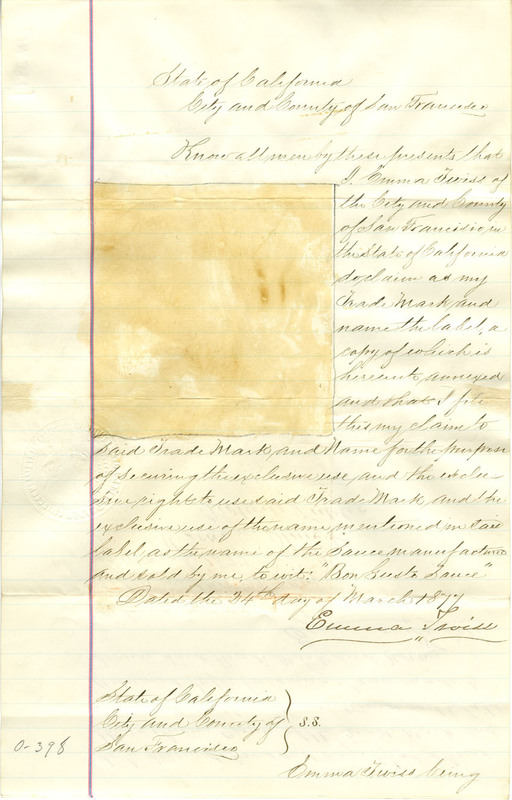 State of California
City and County of San Francisco
Know all men by these presents that
I, Emma Twiss of
the City and County
of San Francisco, in
the State of California
do claim as my
Trade Mark and
name the label, a
copy of which is
hereunto annexed
and that I file
this my claim to
said Trade Mark and Name for the purpose
of securing the exclusive use and the exclu-
sive right to use said Trade Mark and the
exclusive use of the name mentioned in said
label as the name of the Sauce manufactured
and sold by me, to wit: "Bon Gusto Sauce"
Dated the 24th day of March 1877
Emma Twiss
State of California
City and County of } S.S.
San Francisco
0-398
Emma Twiss being